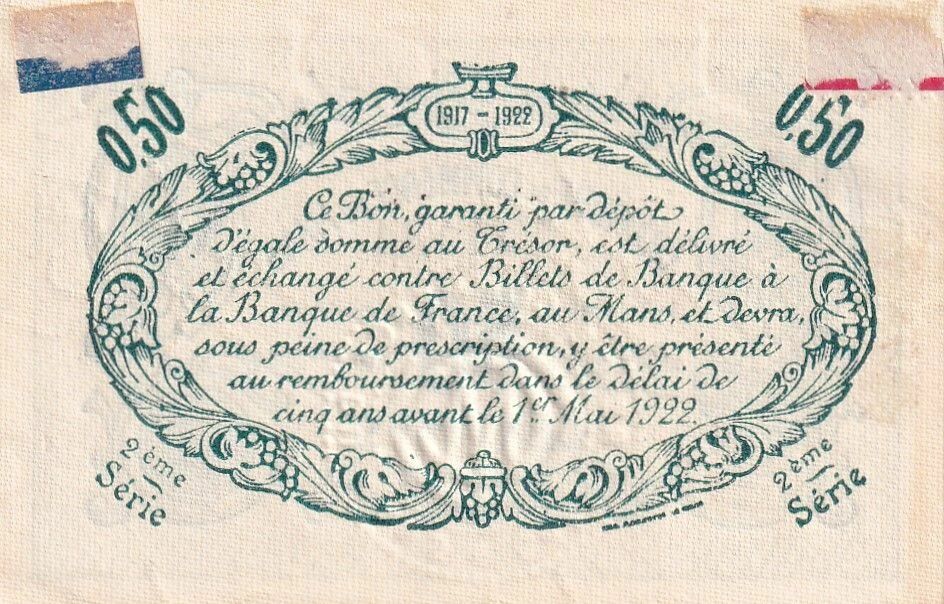 0,50
0,50
1917 - 1922
Ce Bon, garanti par dépôt
d'égale somme au Trésor, est délivré
et échangé contre Billets de Banque à
la Banque de France, au Mans, et devra,
sous peine de prescription, y être présenté
au remboursement dans le délai de
cinq ans avant le 1er Mai 1922.
2ème
Série
2ème
Série